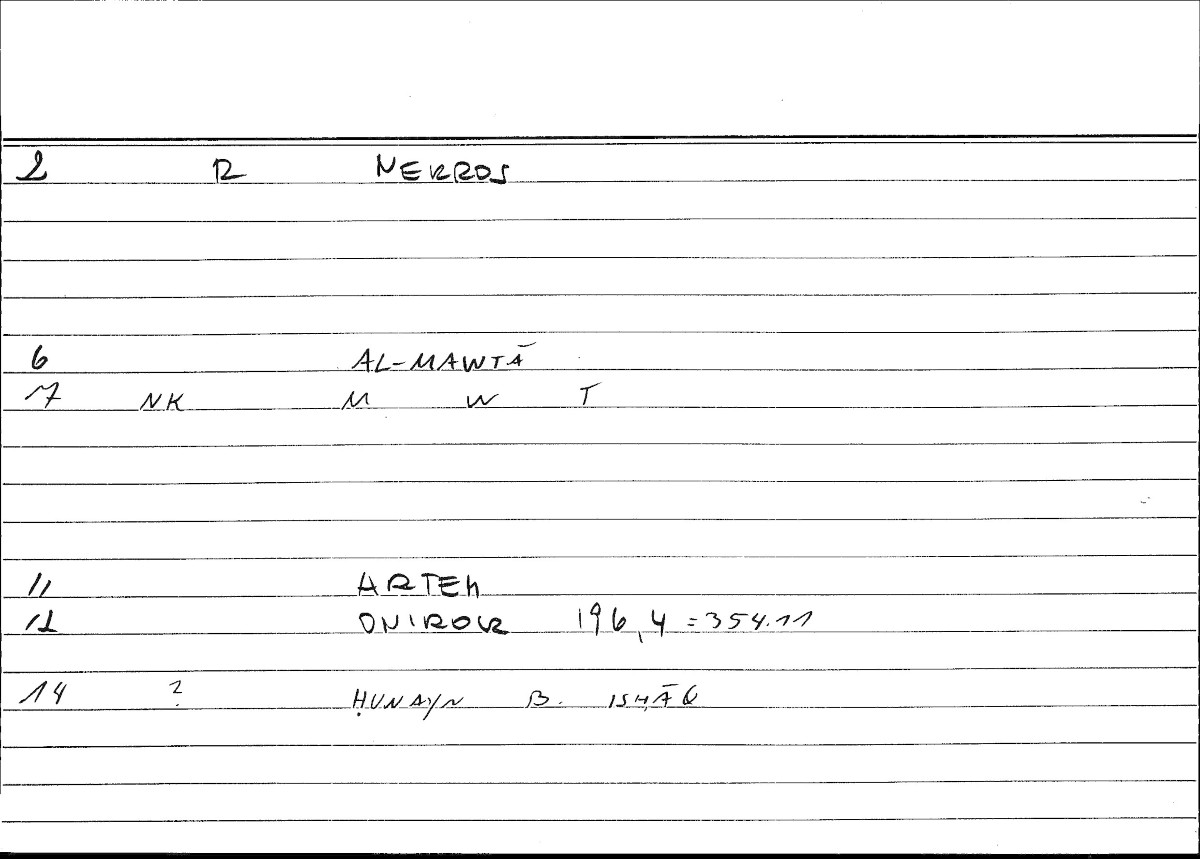 2 R NEKROS
6 AL-MAWTĀ
7 NK M W T
11 ARTEM
12 ONIROK 196,4 = 354.11
14 ? ḤUNAYN B. ISḤĀQ